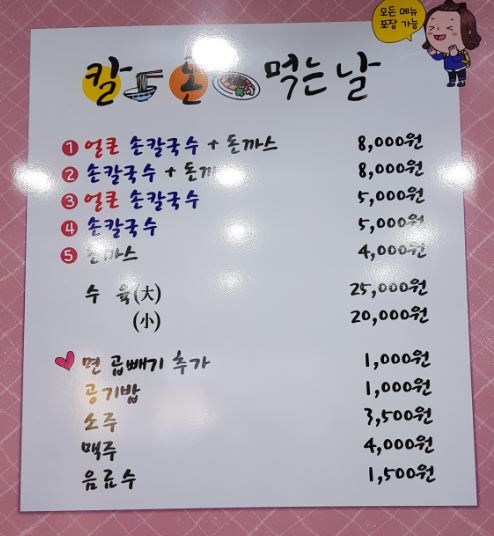 모든 메뉴
포장 가능
칼 돈 먹는 날
1 얼큰 손칼국수 + 돈까스 8,000원
2 손칼국수 + 돈까 8,000원
3 얼큰 손칼국수 5,000원
4 손칼국수 5,000원
5 돈까스 4,000원
수 육(大) 25,000원
(小) 20,000원
면 곱빼기 추가 1,000원
공기밥 1,000원
소주 3,500원
맥주 4,000원
음료수 1,500원